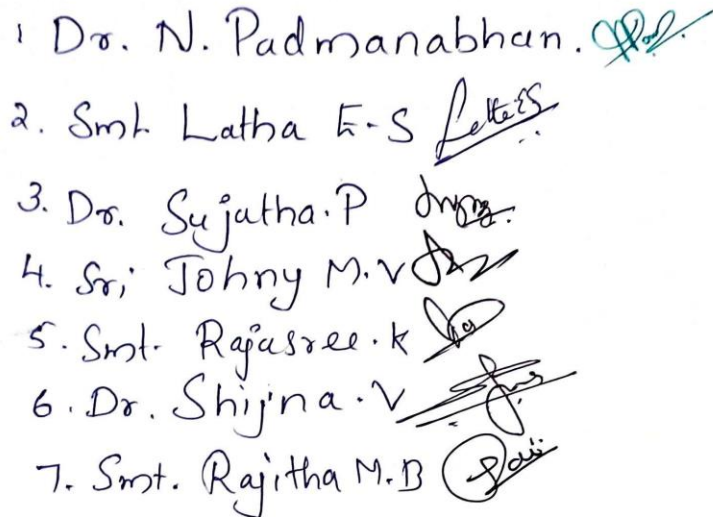 1 Dr. N. Padmanabhan.
2. Smt Latha E-S
3. Dr. Sujatha. P
4. Sri Johny M. V
5. Smt. Rajasree. K
6. Dr. Shijina. V
7. Smt. Rajitha M. B